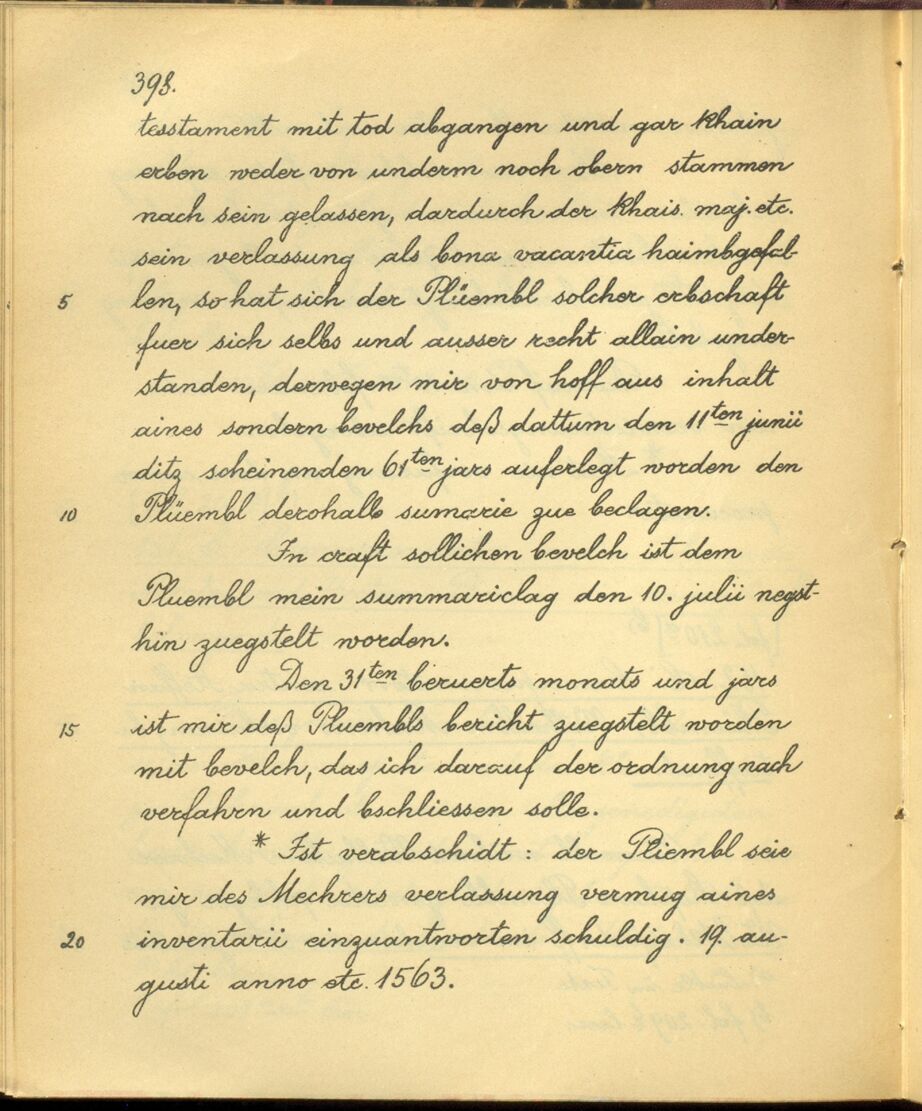 398.
tesstament mit tod abgangen und gar khain
erben weder von underm noch obern stammen
nach sein gelassen, dardurch der khais. maj. etc.
sein verlassung als bona vacantia haimbgefal-
5 len, so hat sich der Plüembl solcher erbschaft
fuer sich selbs und ausser recht allain under-
standen, derwegen mir von hoff aus inhalt
aines sondern bevelchs deß dattum den 11ten junii
ditz scheinenden 61ten jars auferlegt worden den
10 Plüembl derohalb sumarie zue beclagen.
In craft sollichen bevelch ist dem
Pluembl mein summariclag den 10. julii negst-
hin zuegstelt worden.
Den 31ten beruerts monats und jars
15 ist mir deß Pluembls bericht zuegstelt worden
mit bevelch, das ich darauf der ordnung nach
verfahrn und bschliessen solle.
* Ist verabschidt : der Pliembl seie
mir des Mechrers verlassung vermug aines
20 inventarii einzuantworten schuldig. 19. au-
gusti anno etc. 1563.